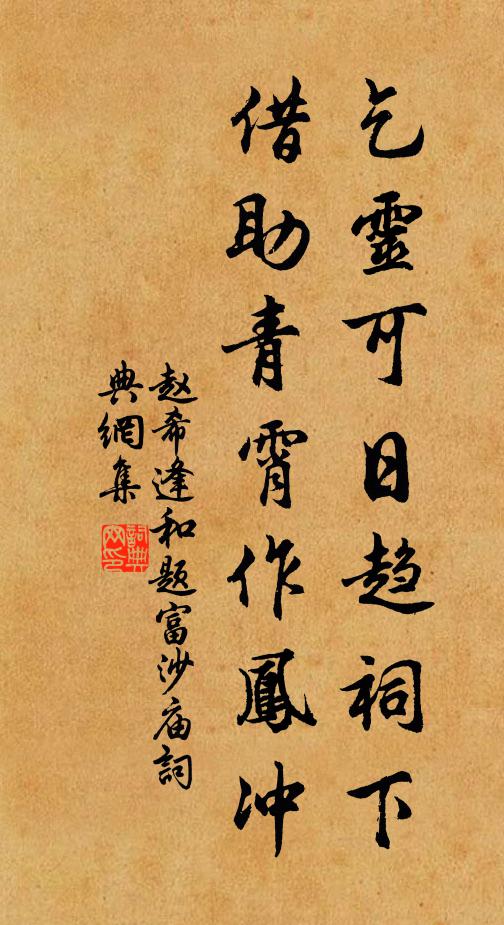 乞靈可日趋祠下
借助青霄作鳳冲
赵希逢和题富沙庙詞
典網集
詞典
网印